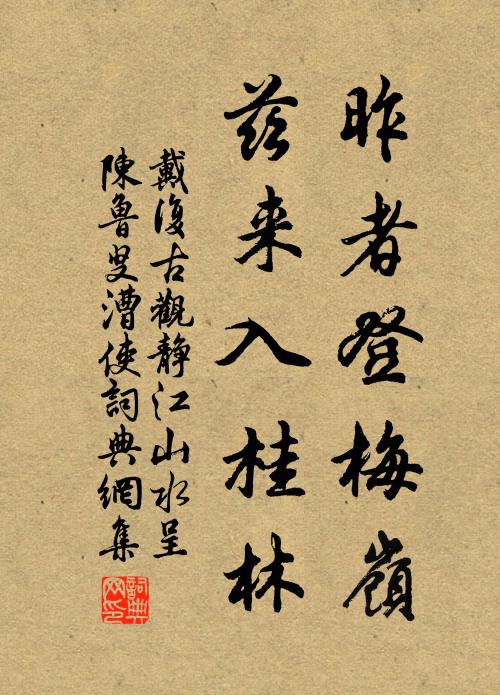 昨者登梅嶺
茲来入桂林
戴復古觀静江山水呈
陳魯叟漕使詞典網集
詞典网印